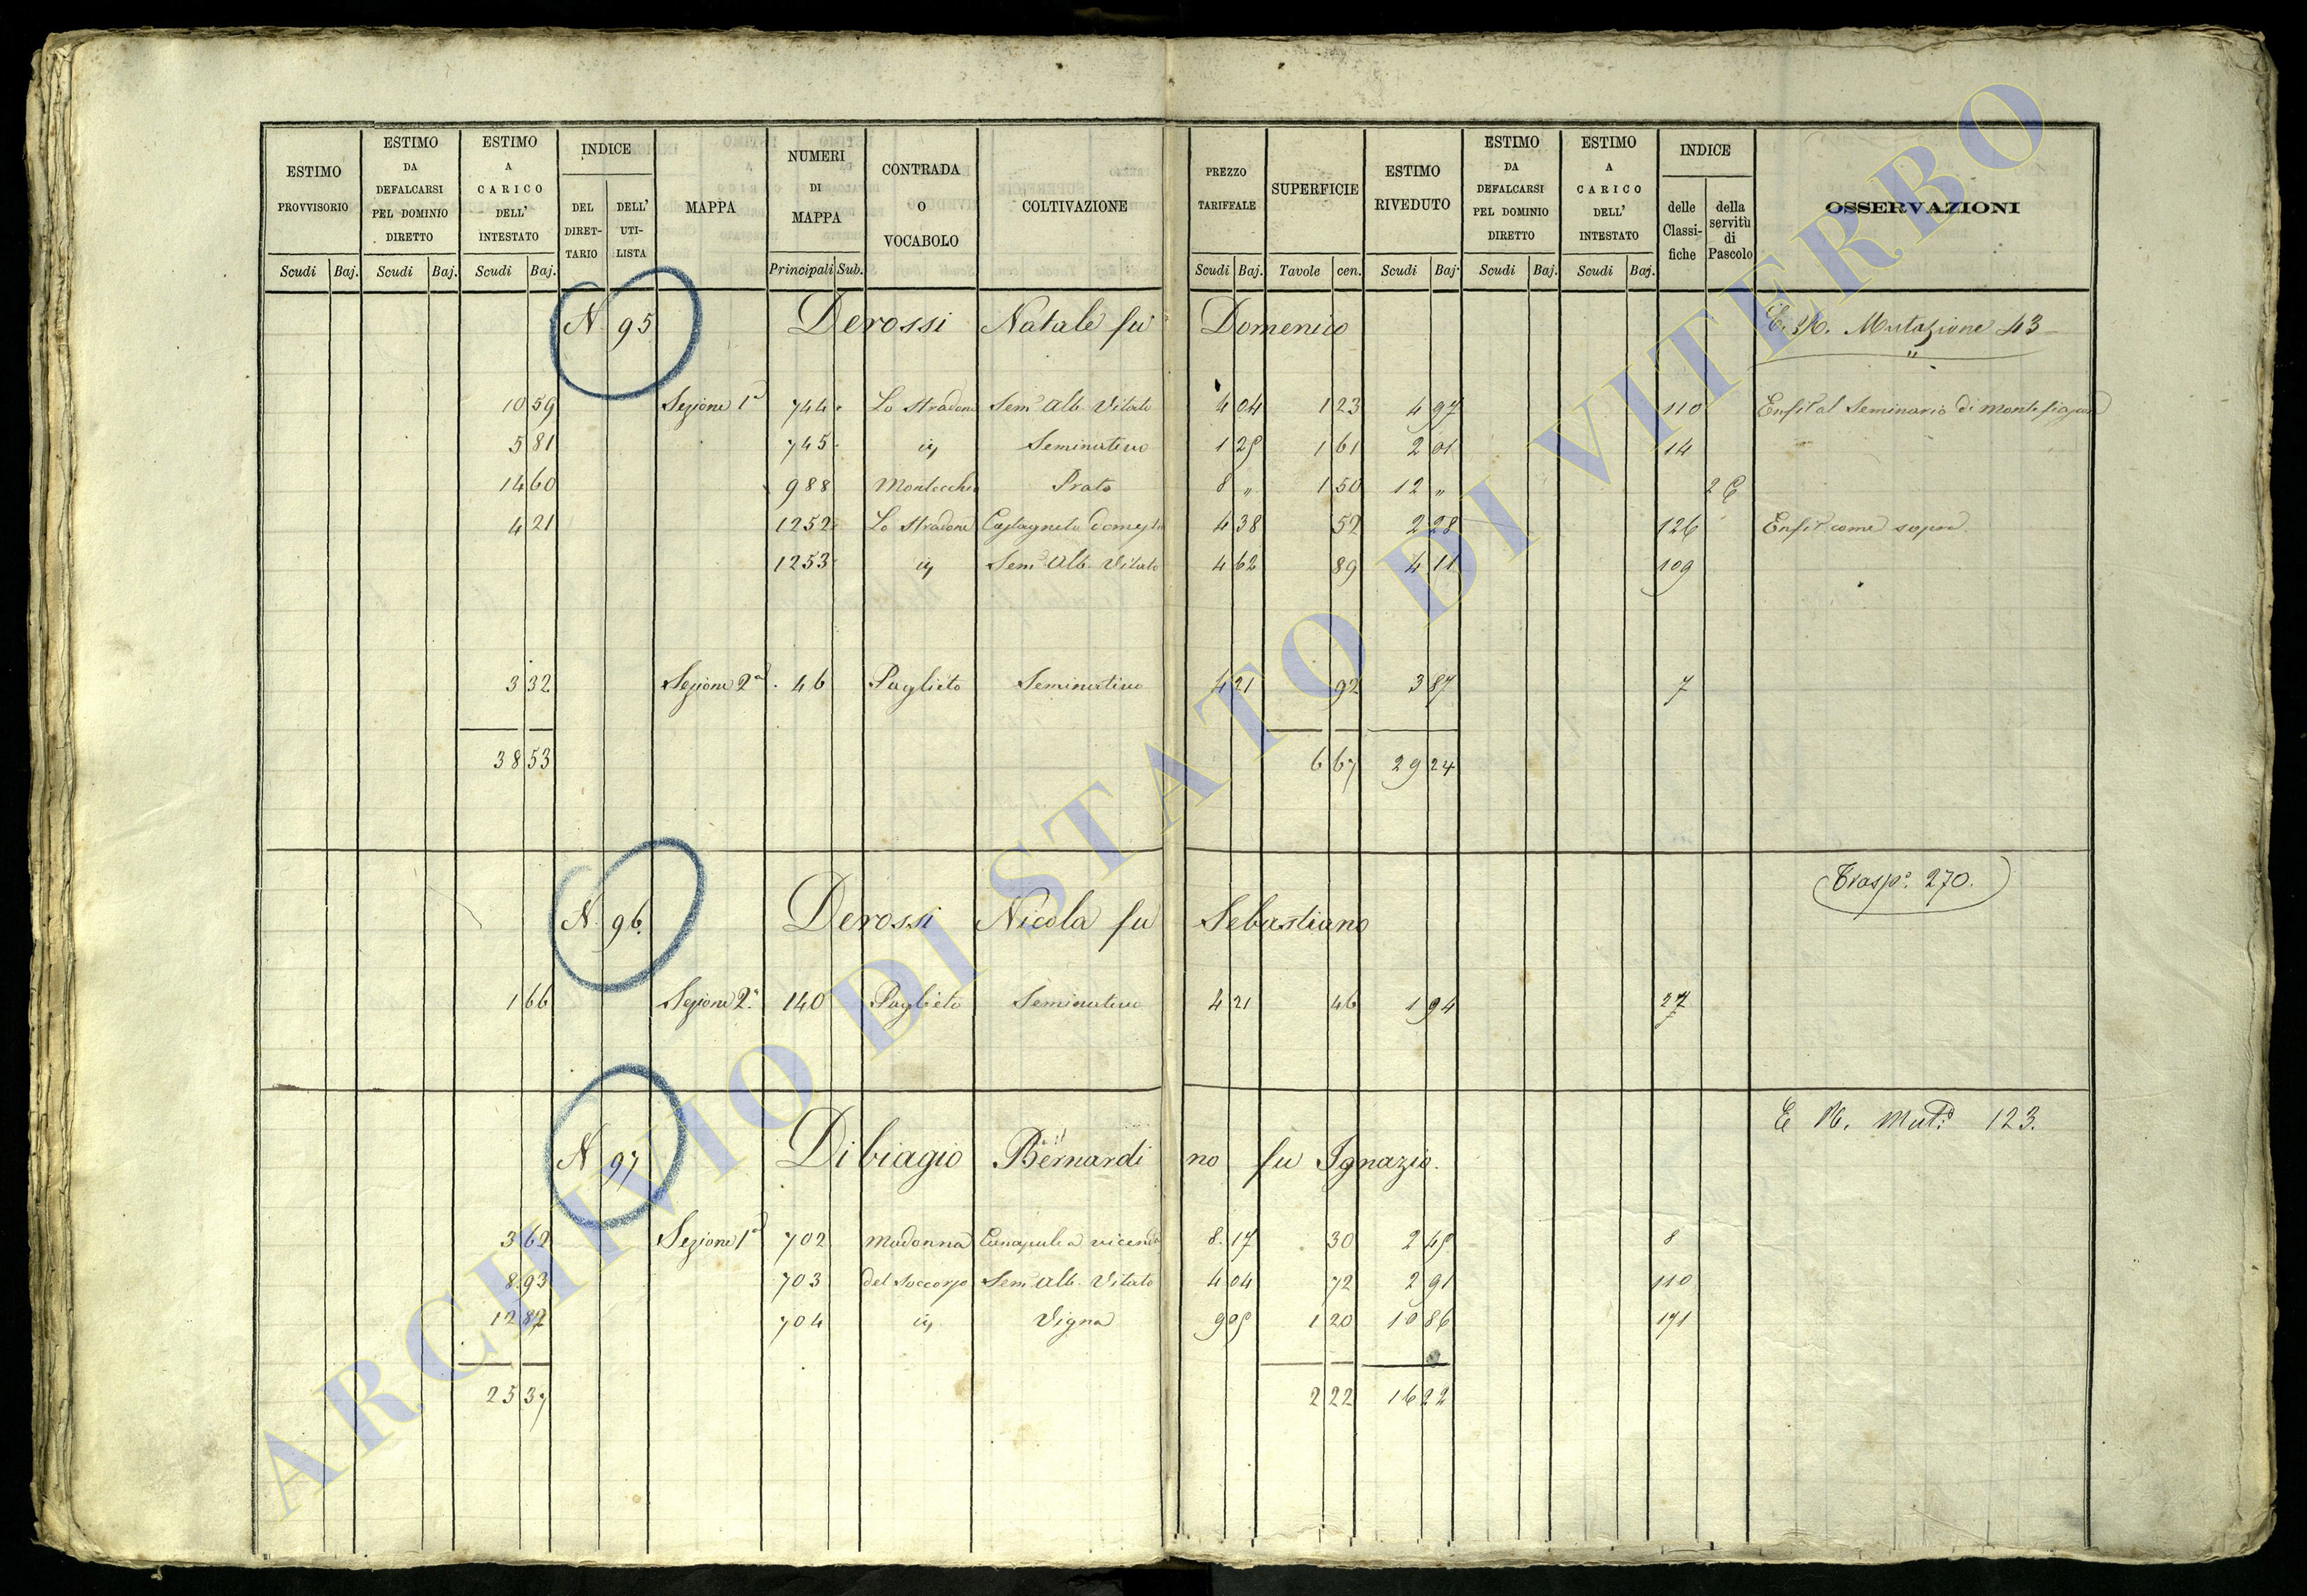 ESTIMO PROVVISORIO | ESTIMO DA DEFALCARSI PEL DOMINIO DIRETTO | ESTIMO A CARICO DELL' INTESTATO | INDICE DEL DIRET-TARIO | DELL' UTI-LISTA | MAPPA | NUMERI DI MAPPA | CONTRADA O VOCABOLO | COLTIVAZIONE | PREZZO TARIFFALE | SUPERFICIE | ESTIMO RIVEDUTO | ESTIMO DA DEFALCARSI PEL DOMINIO DIRETTO | ESTIMO A CARICO DELL' INTESTATO | INDICE delle Classi-fiche | della servitù di Pascolo | OSSERVAZIONI
Scudi | Baj. | Scudi | Baj. | Scudi | Baj. | Principali | Sub. | Scudi | Baj. | Tavole | cen. | Scudi | Baj. | Scudi | Baj. | Scudi | Baj.
N. 95 Derossi Natale fu Domenico Mutazione 43
10 59 Sezione 1a 744 Lo Stradone Sem.o Alb. Vitato 4 04 1 23 4 97 110 Enfit. al Seminario di Montefiascone
5 81 745 id. Seminativo 1 25 1 61 2 01 14
14 60 988 Montecchio Prato 8 " 1 50 12 " 2
4 21 1252 Lo Stradone Castagneto domestico 4 38 52 2 28 126 Enfit. come sopra
1253 id. Sem.o Alb. Vitato 4 62 89 4 11 109
3 32 Sezione 2a 46 Paglieto Seminativo 4 21 92 3 87 7
38 53 6 67 29 24
Trasp.o 270.
N. 96. Derossi Nicola fu Sebastiano
1 66 Sezione 2a 140 Paglieto Seminativo 4 21 46 1 94 27
E N. Mut. 123.
N 97 Dibiagio Bernardino fu Ignazio.
3 62 Sezione 1a 702 Madonna Canapule a vicenda 8 17 30 2 45 8
8 93 703 del Soccorso Sem.o Alb. Vitato 4 04 72 2 91 110
12 82 704 id. Vigna 9 05 1 20 10 86 171
25 37 2 22 16 22
ARCHIVIO DI STATO DI VITERBO